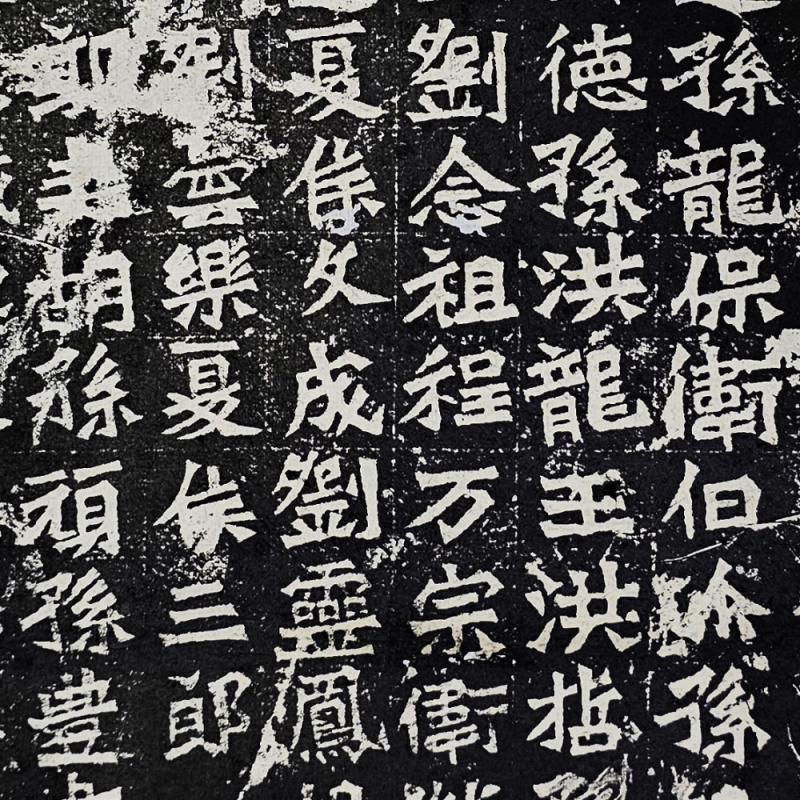 孫龍保衛伯孫
德孫洪龍王洪哲
劉念祖程万宗衛
夏侯文成劉靈鳳
劉雲樂夏侯三郎
胡孫頑孫豊